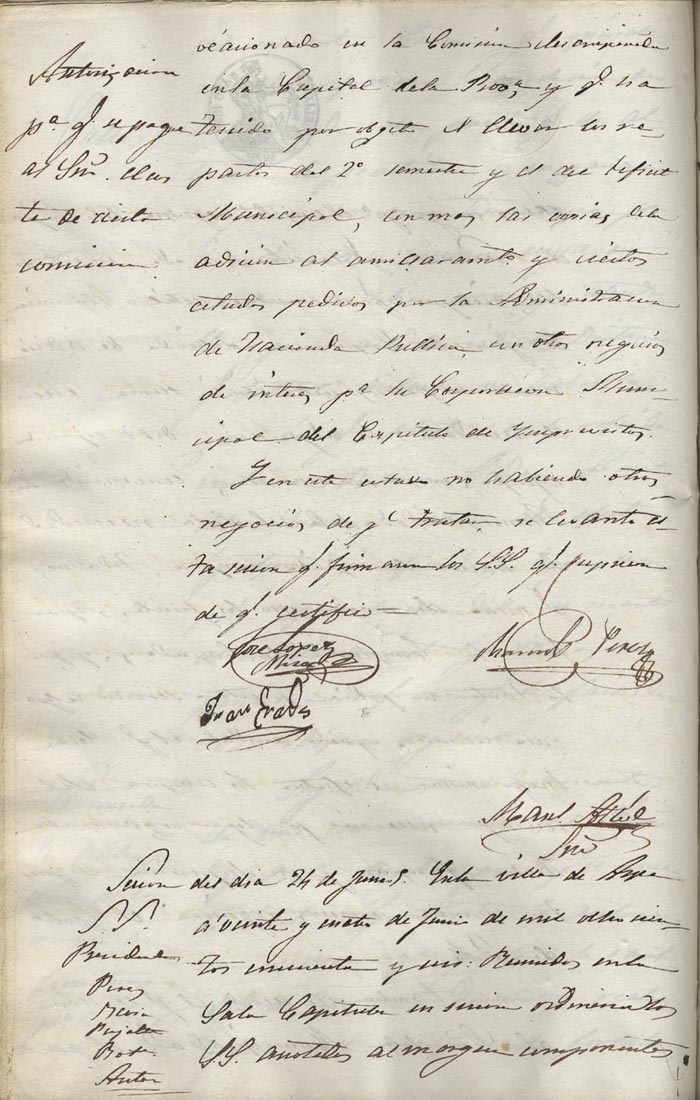 Autorizacion
pª q.e se pague
al Srio. el cos
te de cierta
comision
ocacionado en la Comision desempeñada
en la Capital de la Prov.ª y q.e ha
tenido por objeto el llevar los re-
partos del 2º semestre y el del deficit
Municipal, con mas las copias de la
adicion al amillaramto. y ciertos
estados pedidos por la Administracion
de Hacienda Publica, con otros negocios
de interes pª la Corporacion Muni-
cipal del Capitulo de Imprevistos.
Y en este estado no habiendo otros
negocios de q.e tratar, se levantó es-
ta sesion q.e firmaron los SS. q.e supieron
de q.e certifico
Jose Lopez
Manuel Perez
Juan
Manl.
Srio
Sesion del dia 24 de Junio. En la villa de Aspe
á veinte y cuatro de Junio de mil ochocien-
tos cincuenta y seis: Reunidos en la
Sala Capitular en sesion ordinaria los
SS. anotados al margen componentes
SS.
Presidente
Perez
Botella
Autor